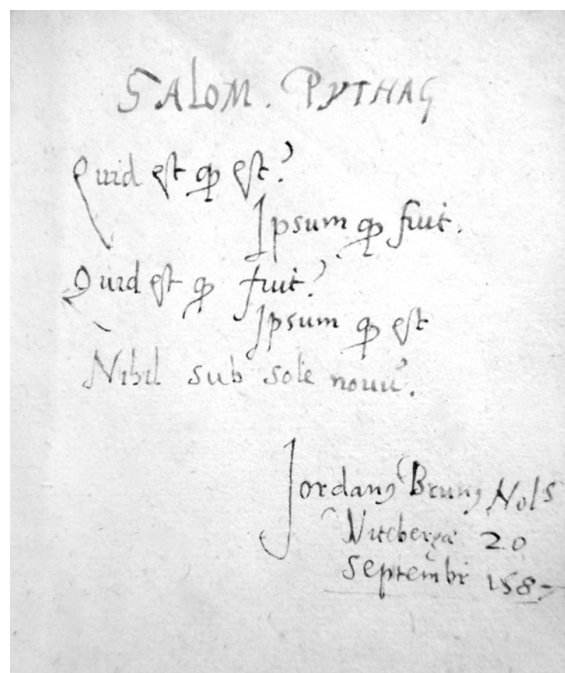 SALOM. PYTHAG
Quid est qꝫ est?
Ipsum qꝫ fuit.
Quid est qꝫ fuit?
Ipsum qꝫ est
Nihil sub sole nouũ.
Jordanꝰ Brunꝰ Nolˢ
Witebergæ 20
Septembr 1587